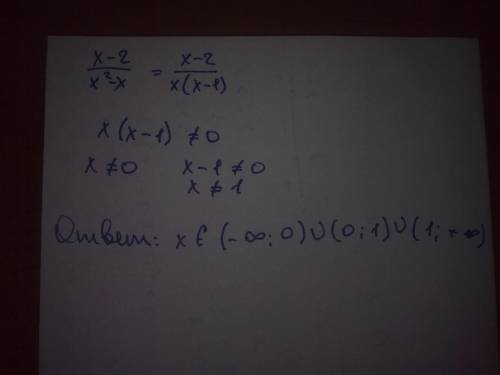 x-2 / x²-x = x-2 / x(x-1)
x(x-1) ≠0
x≠0 x-1≠0
x≠1
Ответ: x∈(-∞;0)∪(0;1)∪(1;+∞)